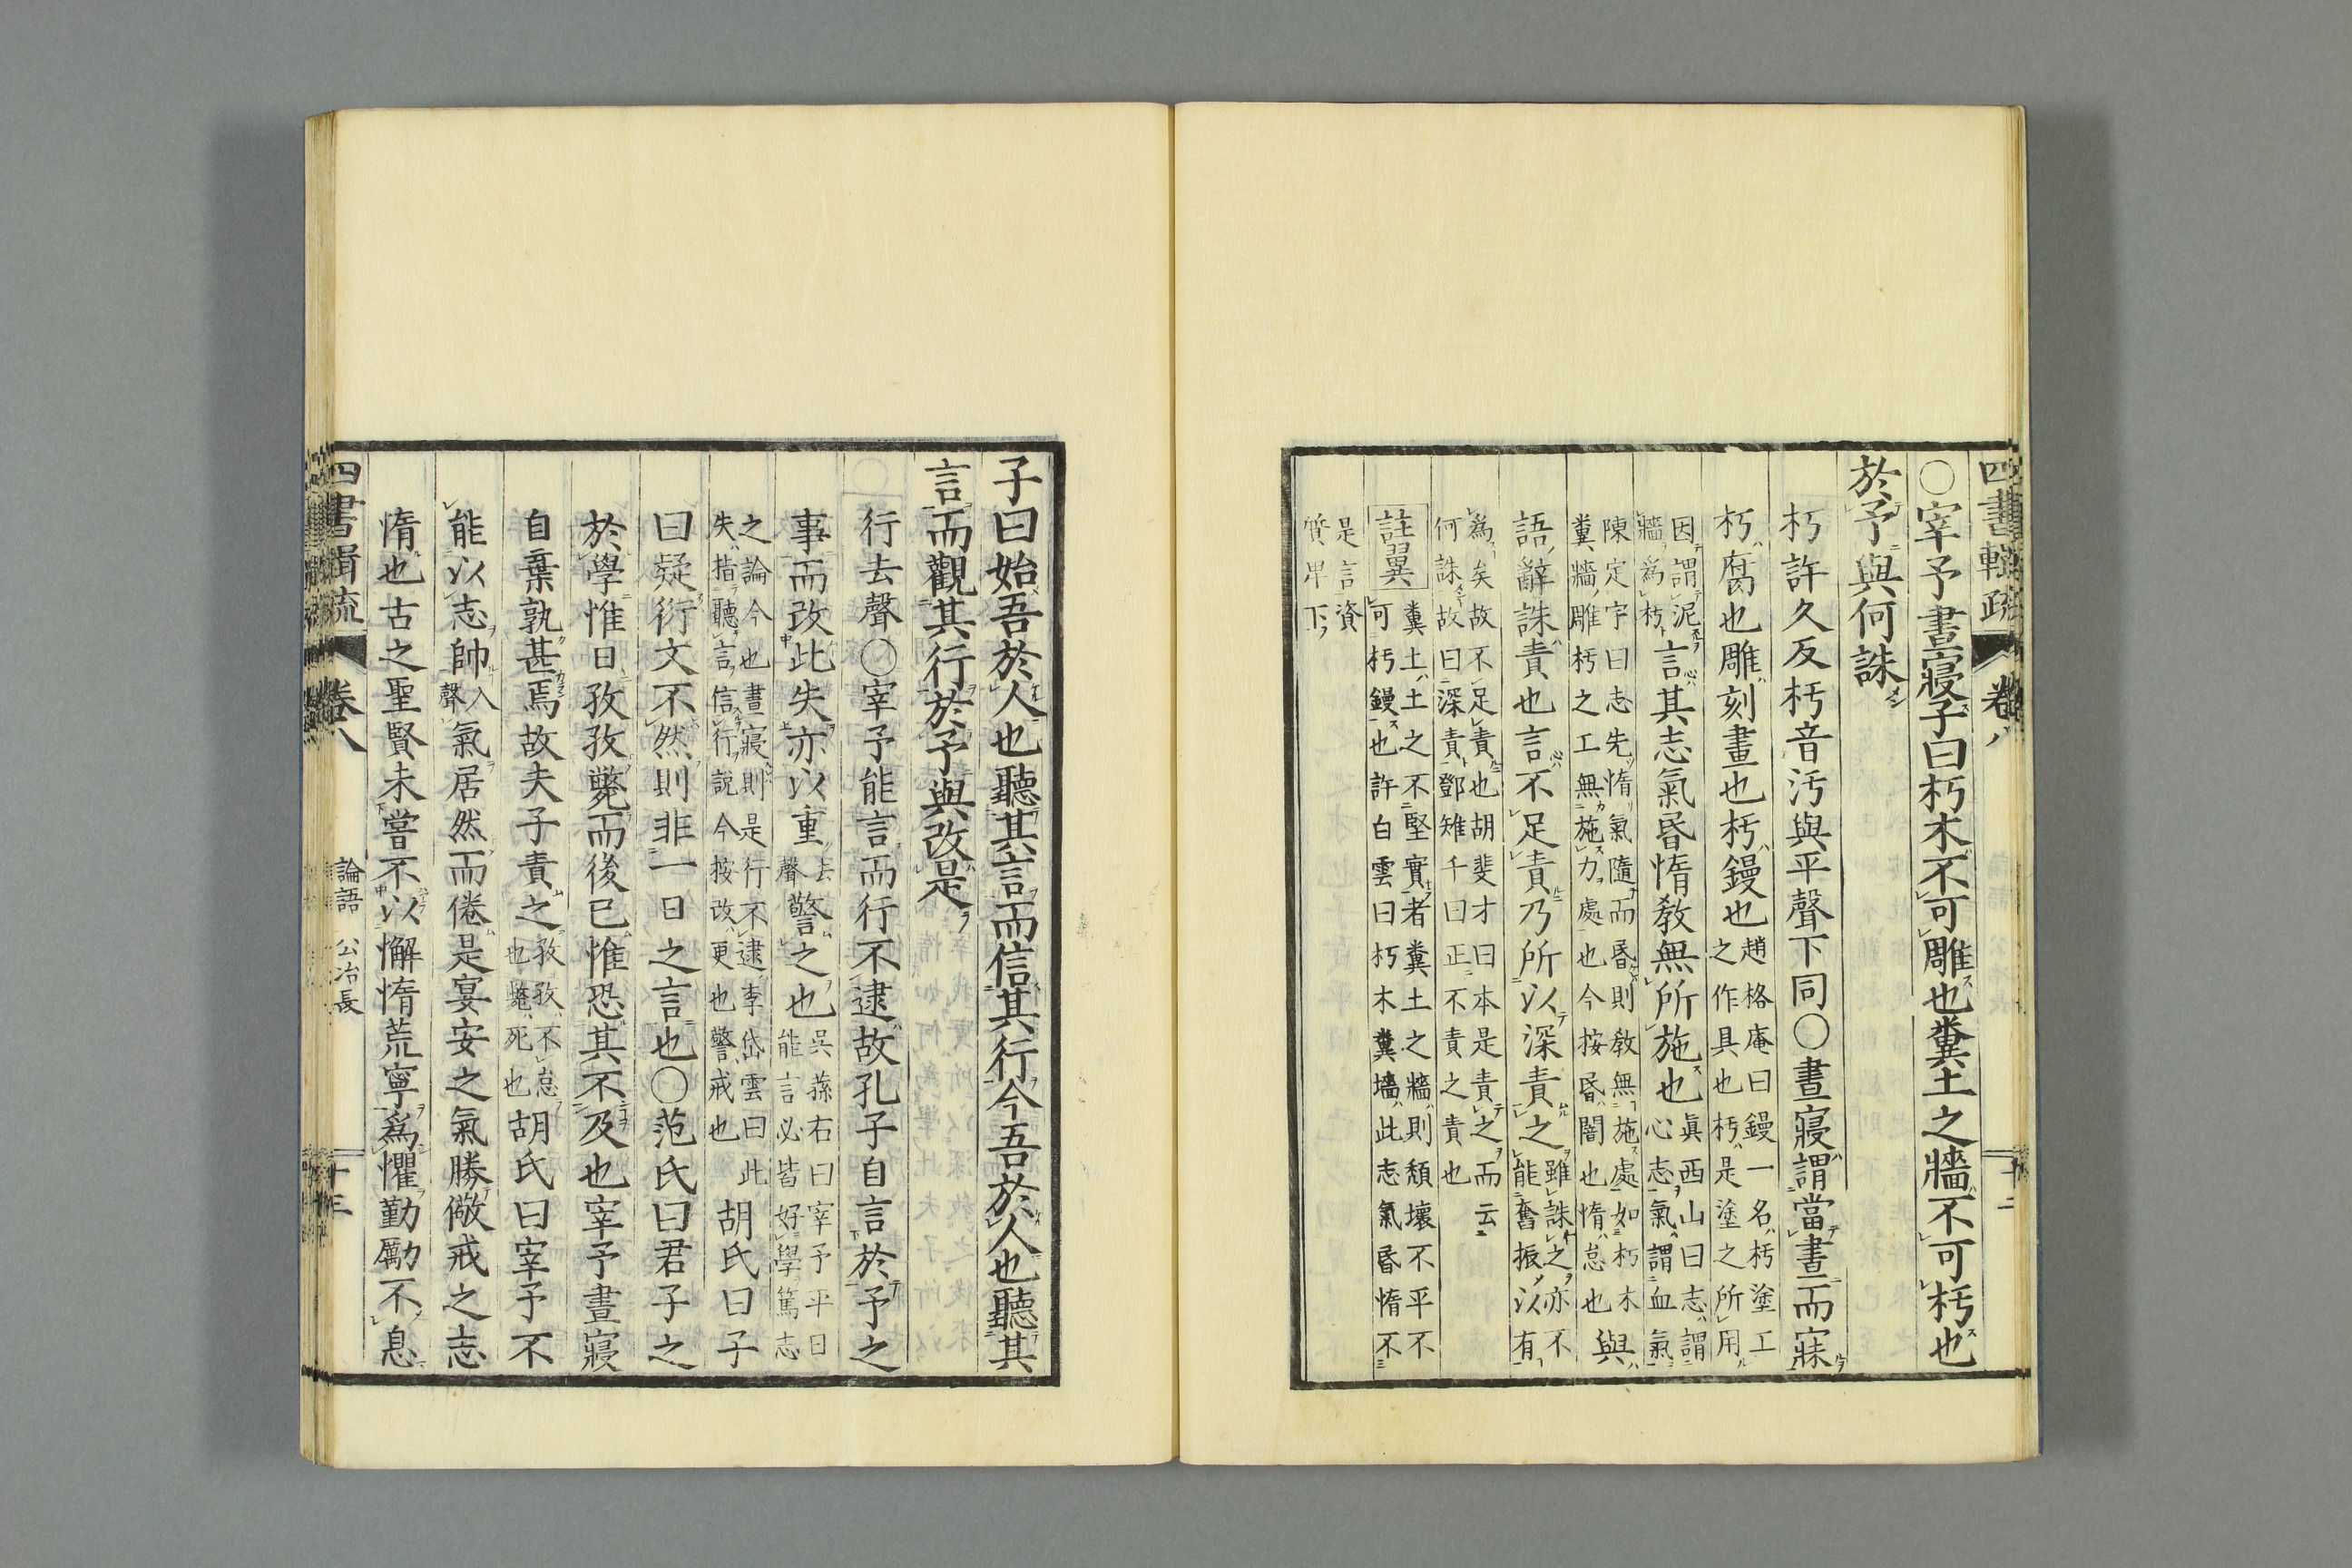 四書輯疏 卷八 十二
〇宰予晝寢子曰朽木不可雕也糞土之牆不可杇也
於予與何誅
朽許久反杇音汚與平聲下同〇晝寢謂當晝而寐
朽腐也雕刻畫也杇鏝也趙格庵曰鏝一名杇塗工之作具也杇是塗之所用
因謂泥牆爲杇言其志氣昏惰敎無所施也眞西山曰志謂心志氣謂血氣
陳定宇曰志先惰氣隨而昏則敎無施處如朽木糞牆雕杇之工無施力處也今按昏闇也惰怠也與
語辭誅責也言不足責乃所以深責之雖誅之亦不能奮振以有
爲矣故不足責也胡斐才曰本是責之而云何誅故曰深責鄧雉千曰正不責之責也
註翼糞土土之不堅實者糞土之牆則頽壞不平不可杇鏝也許白雲曰朽木糞墻此志氣昏惰不
是言資質卑下
子曰始吾於人也聽其言而信其行今吾於人也聽其
言而觀其行於予與改是
行去聲〇宰予能言而行不逮故孔子自言於予之
事而改此失亦以重去聲警之也吳蓀右曰宰予平日能言必皆好學篤志
之論今也晝寢則是行不逮李岱雲曰此失指聽言信行說今按改更也警戒也胡氏曰子
曰疑衍文不然則非一日之言也〇范氏曰君子之
於學惟日孜孜斃而後已惟恐其不及也宰予晝寢
自棄孰甚焉故夫子責之孜孜不怠也斃死也胡氏曰宰予不
能以志帥入聲氣居然而倦是宴安之氣勝儆戒之志
惰也古之聖賢未嘗不以懈惰荒寧爲懼勤勵不息
四書輯疏 卷八 論語 公冶長 十三